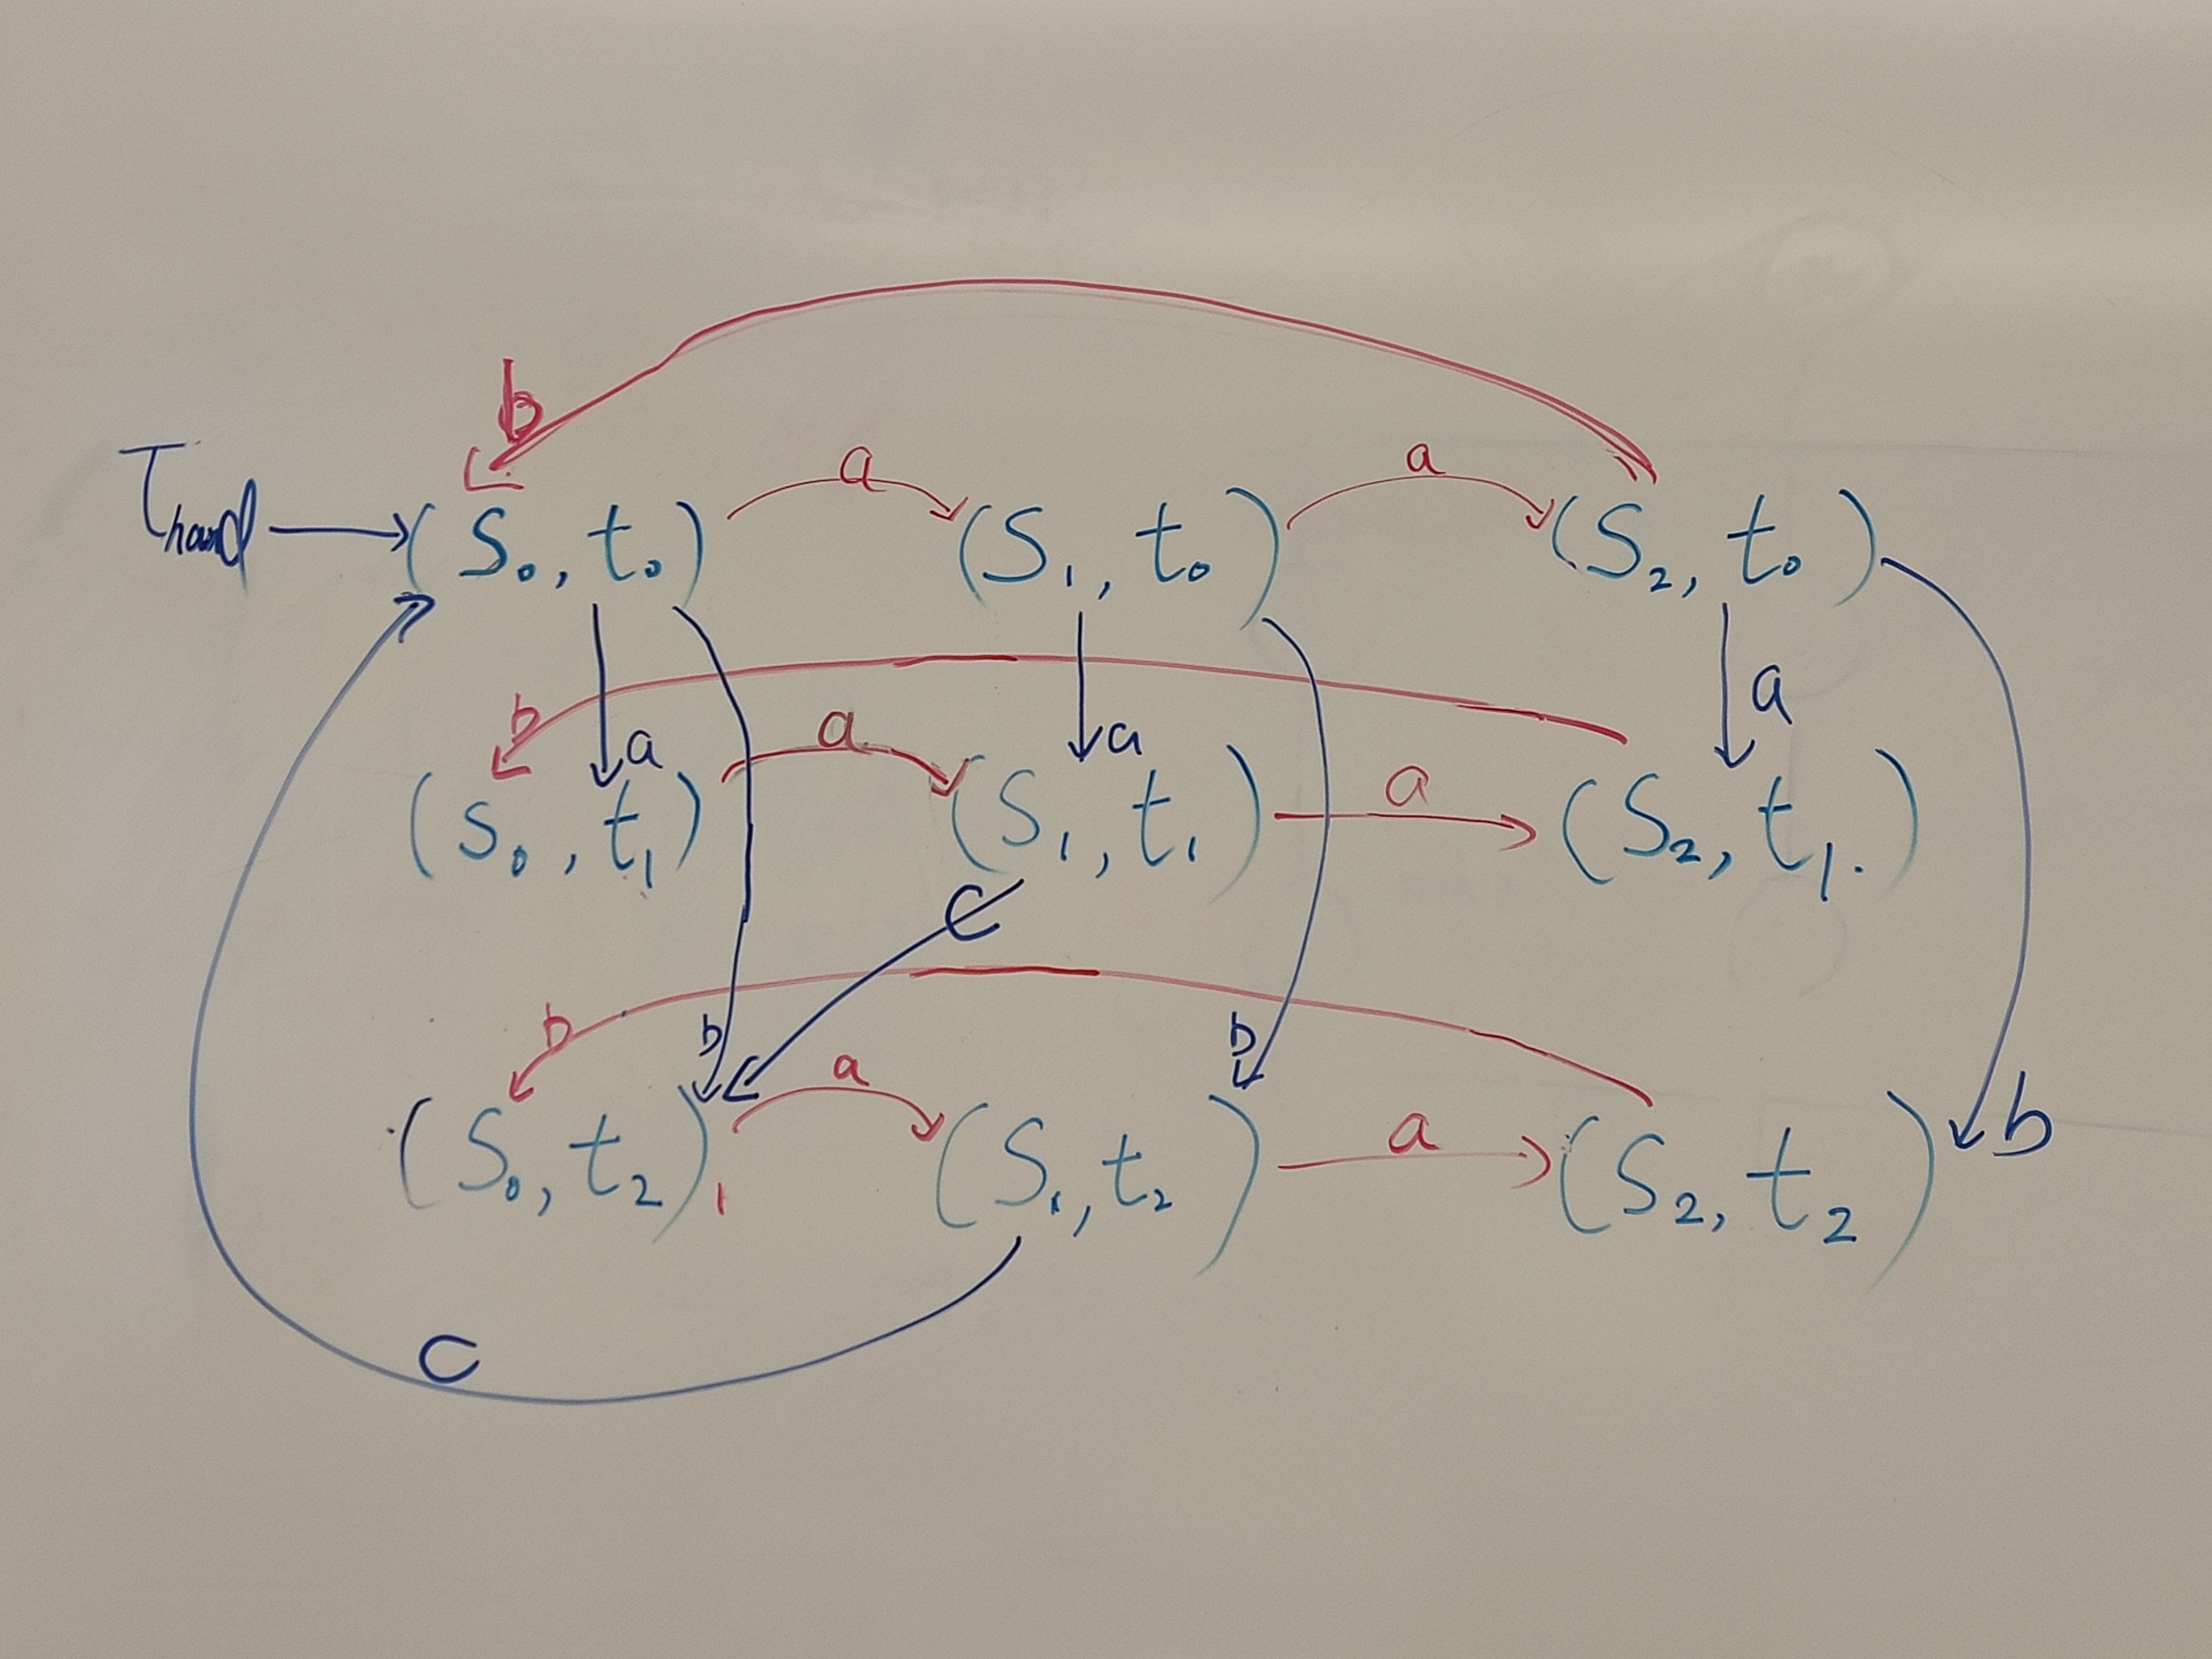 b
a a
T_hand → (S₀, t₀) (S₁, t₀) (S₂, t₀)
b a a a a
(S₀, t₁) (S₁, t₁) a (S₂, t₁.)
c
b b a b
(S₀, t₂) (S₁, t₂) a (S₂, t₂) b
c